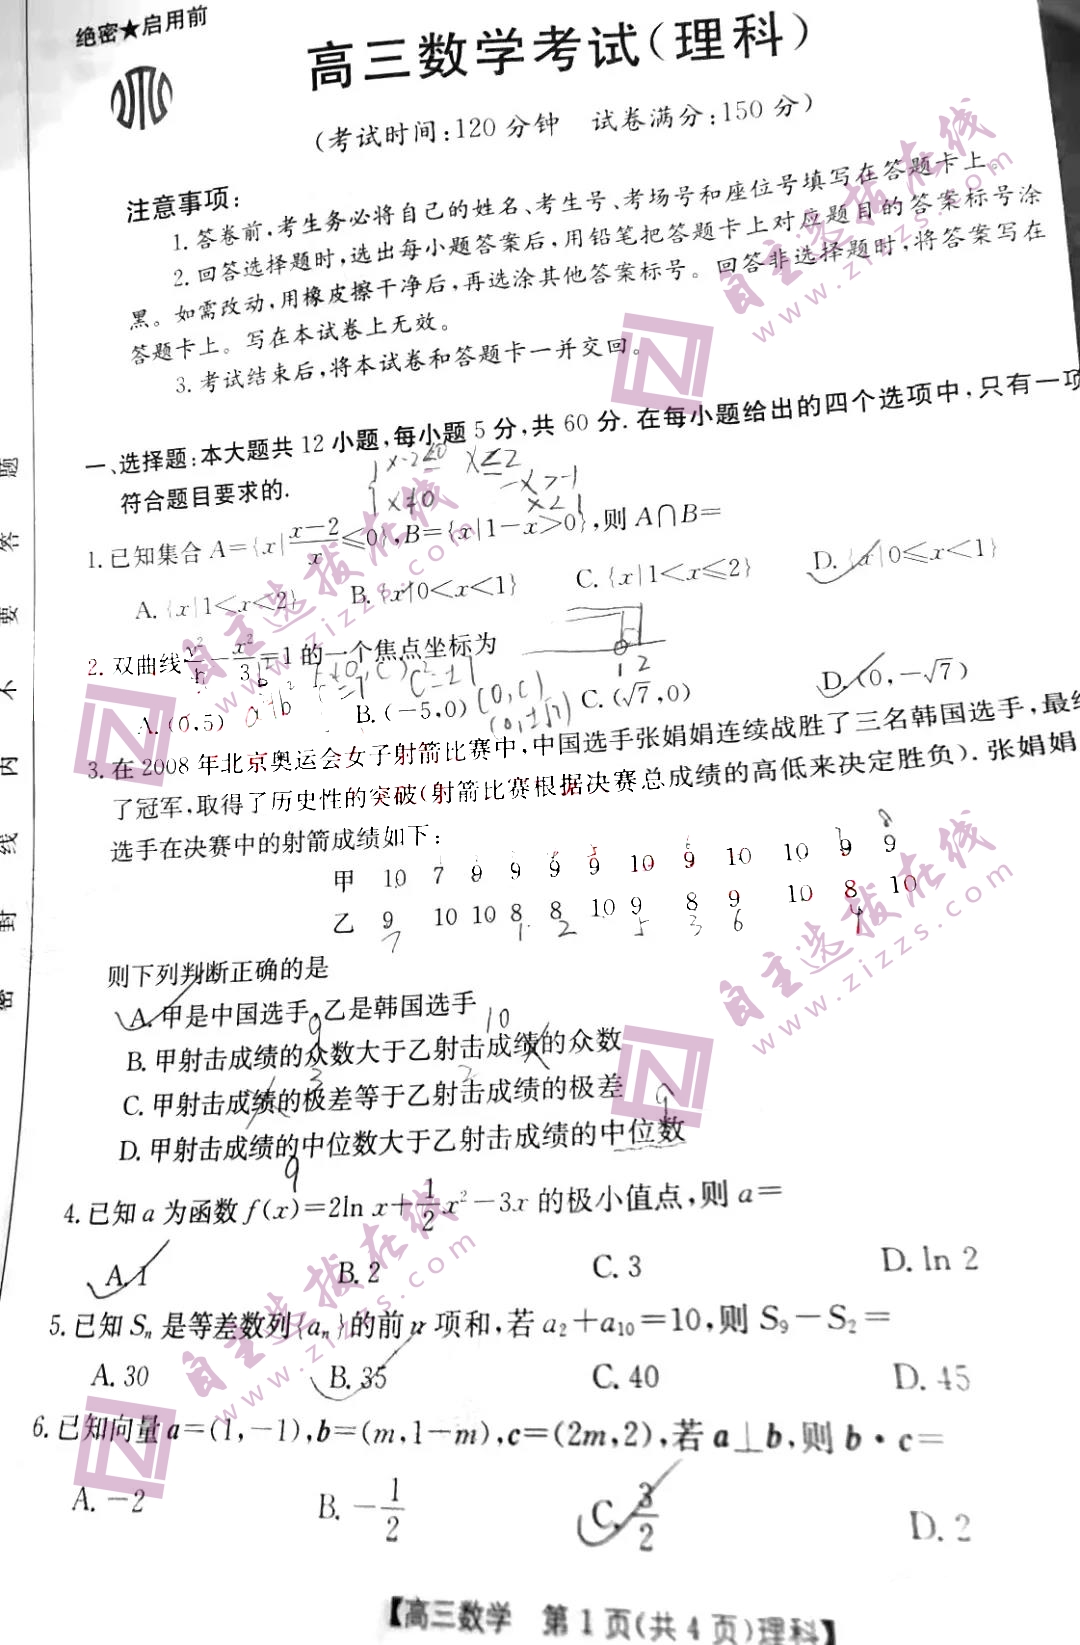 绝密★启用前
高三数学考试(理科)
(考试时间:120分钟 试卷满分:150分)
注意事项:
1.答卷前,考生务必将自己的姓名、考生号、考场号和座位号填写在答题卡上。
2.回答选择题时,选出每小题答案后,用铅笔把答题卡上对应题目的答案标号涂
黑。如需改动,用橡皮擦干净后,再选涂其他答案标号。回答非选择题时,将答案写在
答题卡上。写在本试卷上无效。
3.考试结束后,将本试卷和答题卡一并交回。
一、选择题:本大题共12小题,每小题5分,共60分.在每小题给出的四个选项中,只有一项
符合题目要求的.
x-2≤0 x≤2
x≠0
-x>-1
x<1
1.已知集合A={x|(x-2)/x≤0},B={x|1-x>0},则A∩B=
A.{x|1<x<2} B.{x|0<x<1} C.{x|1<x≤2} D.{x|0≤x<1}
1 2
2.双曲线y²/4-x²/3=1的一个焦点坐标为
A.(0,5) B.(-5,0) C.(√7,0) D.(0,-√7)
(0,c)
3.在2008年北京奥运会女子射箭比赛中,中国选手张娟娟连续战胜了三名韩国选手,最终
了冠军,取得了历史性的突破(射箭比赛根据决赛总成绩的高低来决定胜负).张娟娟
选手在决赛中的射箭成绩如下:
甲 10 7 9 9 9 9 10 9 10 10 9 9
乙 9 10 10 8 8 10 9 8 9 10 8 10
7 1 2 5 3 6 4
则下列判断正确的是
A.甲是中国选手,乙是韩国选手
9 10
B.甲射击成绩的众数大于乙射击成绩的众数
3 2
C.甲射击成绩的极差等于乙射击成绩的极差
9
D.甲射击成绩的中位数大于乙射击成绩的中位数
9
4.已知a为函数f(x)=2ln x+1/2x²-3x的极小值点,则a=
A.1 B.2 C.3 D.ln 2
5.已知Sₙ是等差数列{aₙ}的前n项和,若a₂+a₁₀=10,则S₉-S₂=
A.30 B.35 C.40 D.45
6.已知向量a=(1,-1),b=(m,1-m),c=(2m,2),若a⊥b,则b·c=
A.-2 B.-1/2 C.3/2 D.2
【高三数学 第1页(共4页)理科】
密 封 线 内 不 要 答 题
自主选拔在线
www.zizzs.com
自主选拔在线
www.zizzs.com
自主选拔在线
www.zizzs.com
自主选拔在线
www.zizzs.com